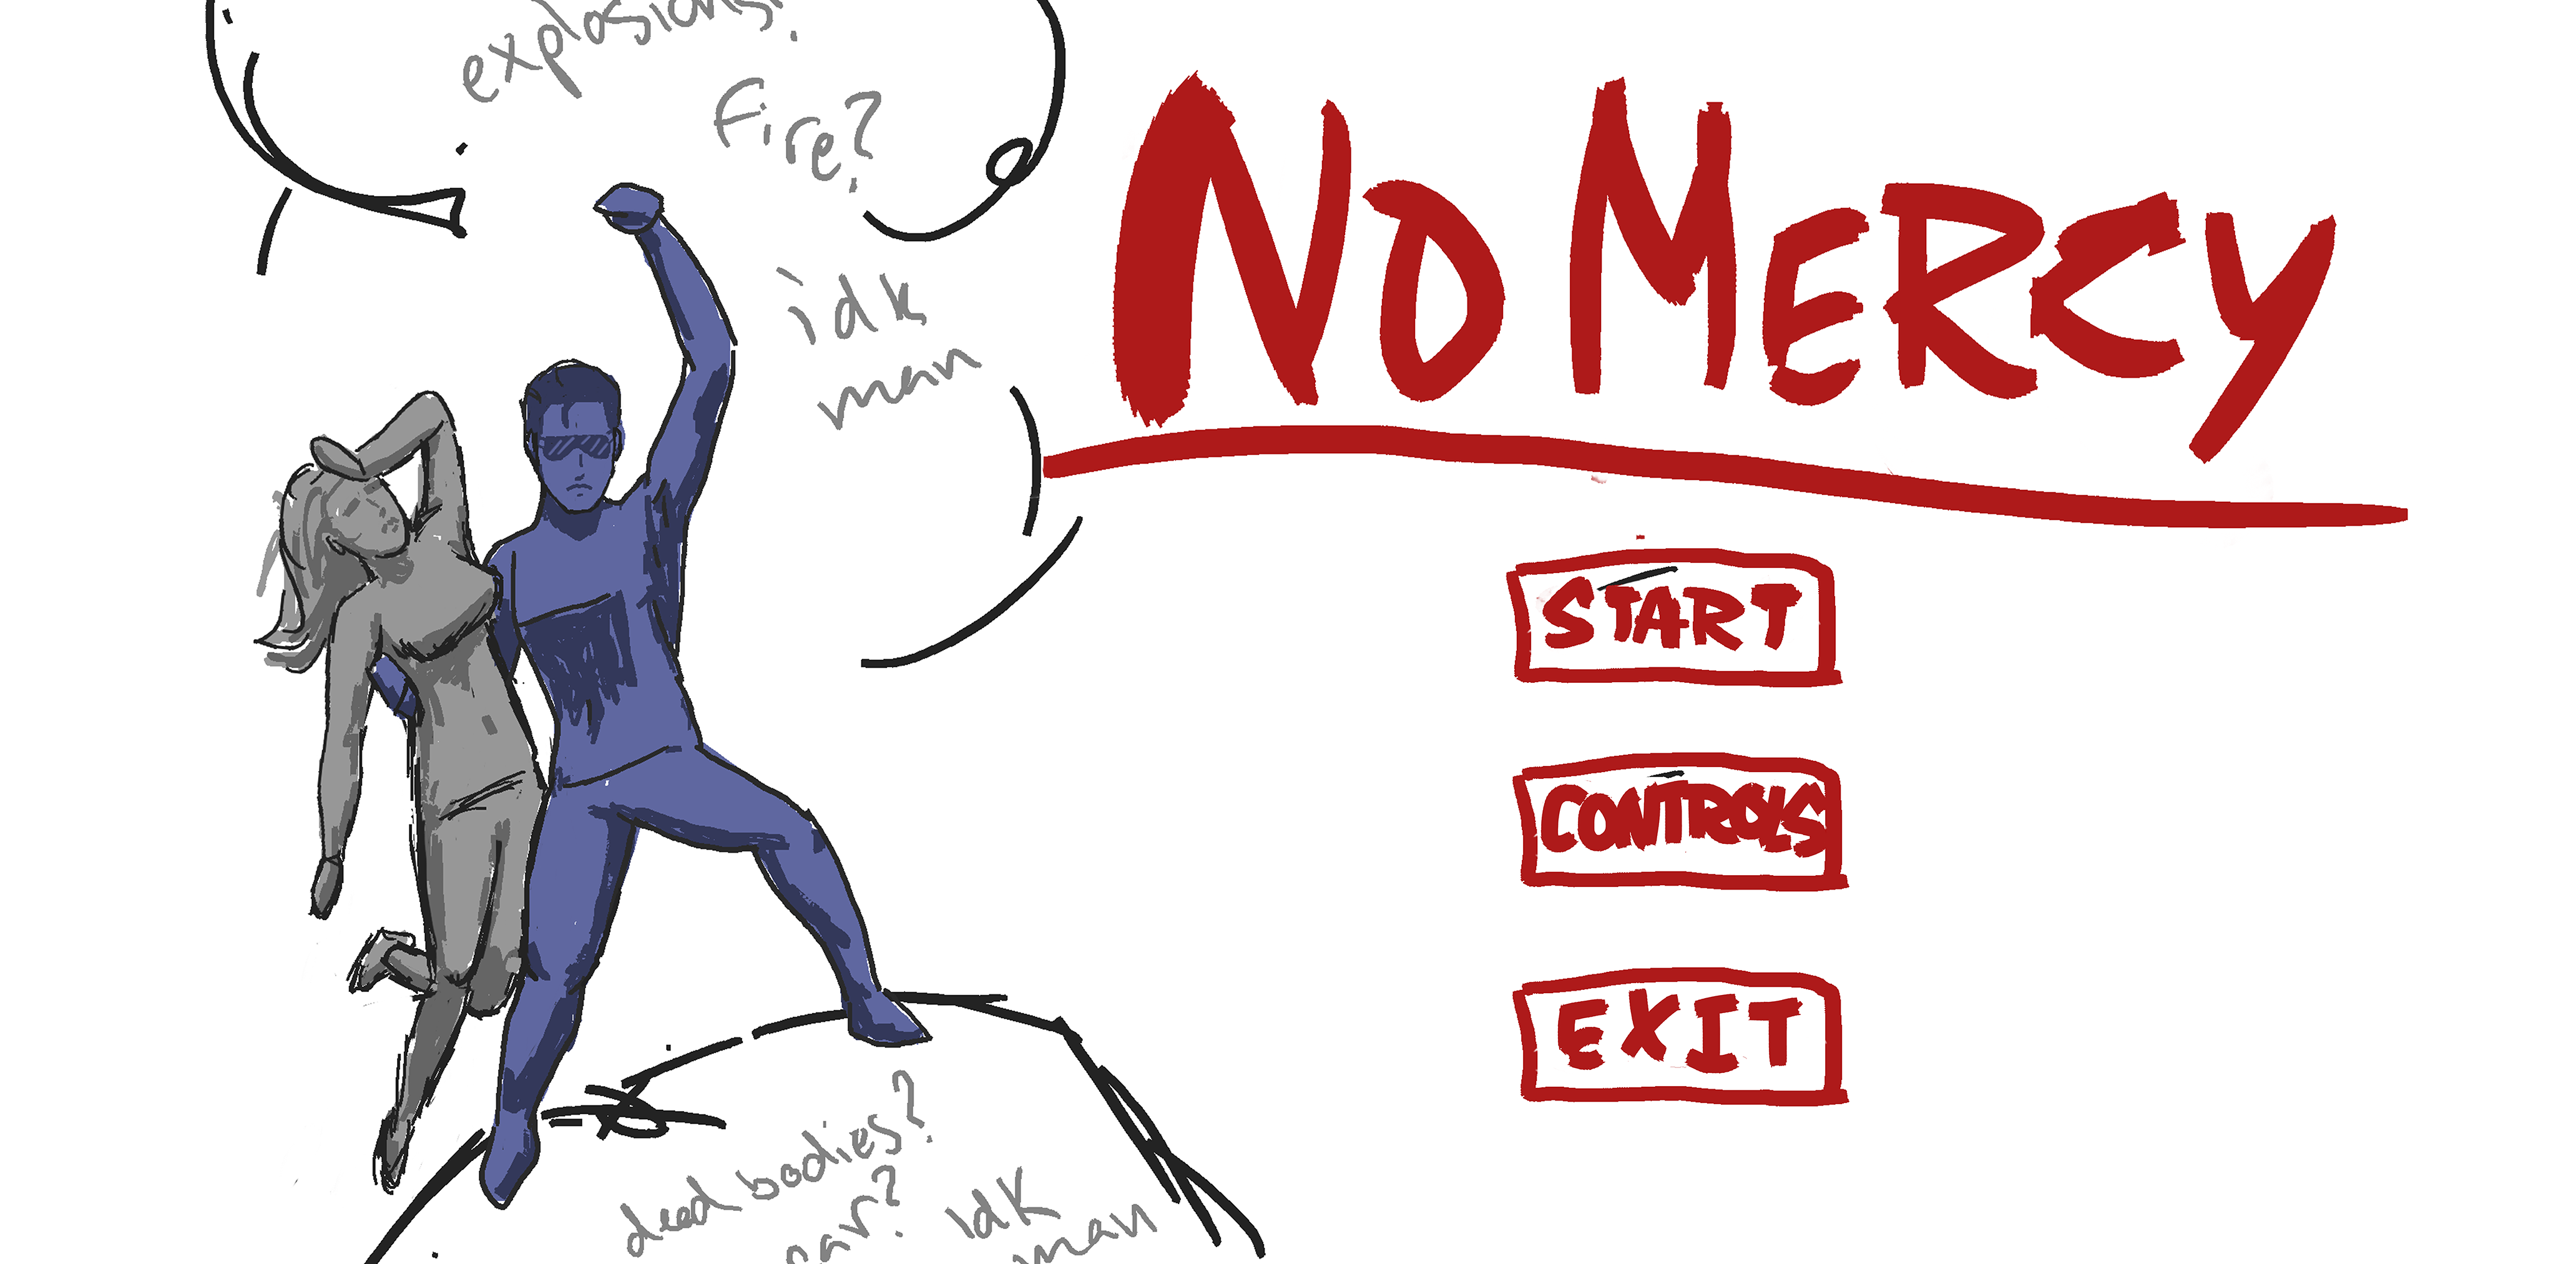 explosions?
fire?
idk
man
NO MERCY
START
CONTROLS
EXIT
dead bodies?
car?
idk
man